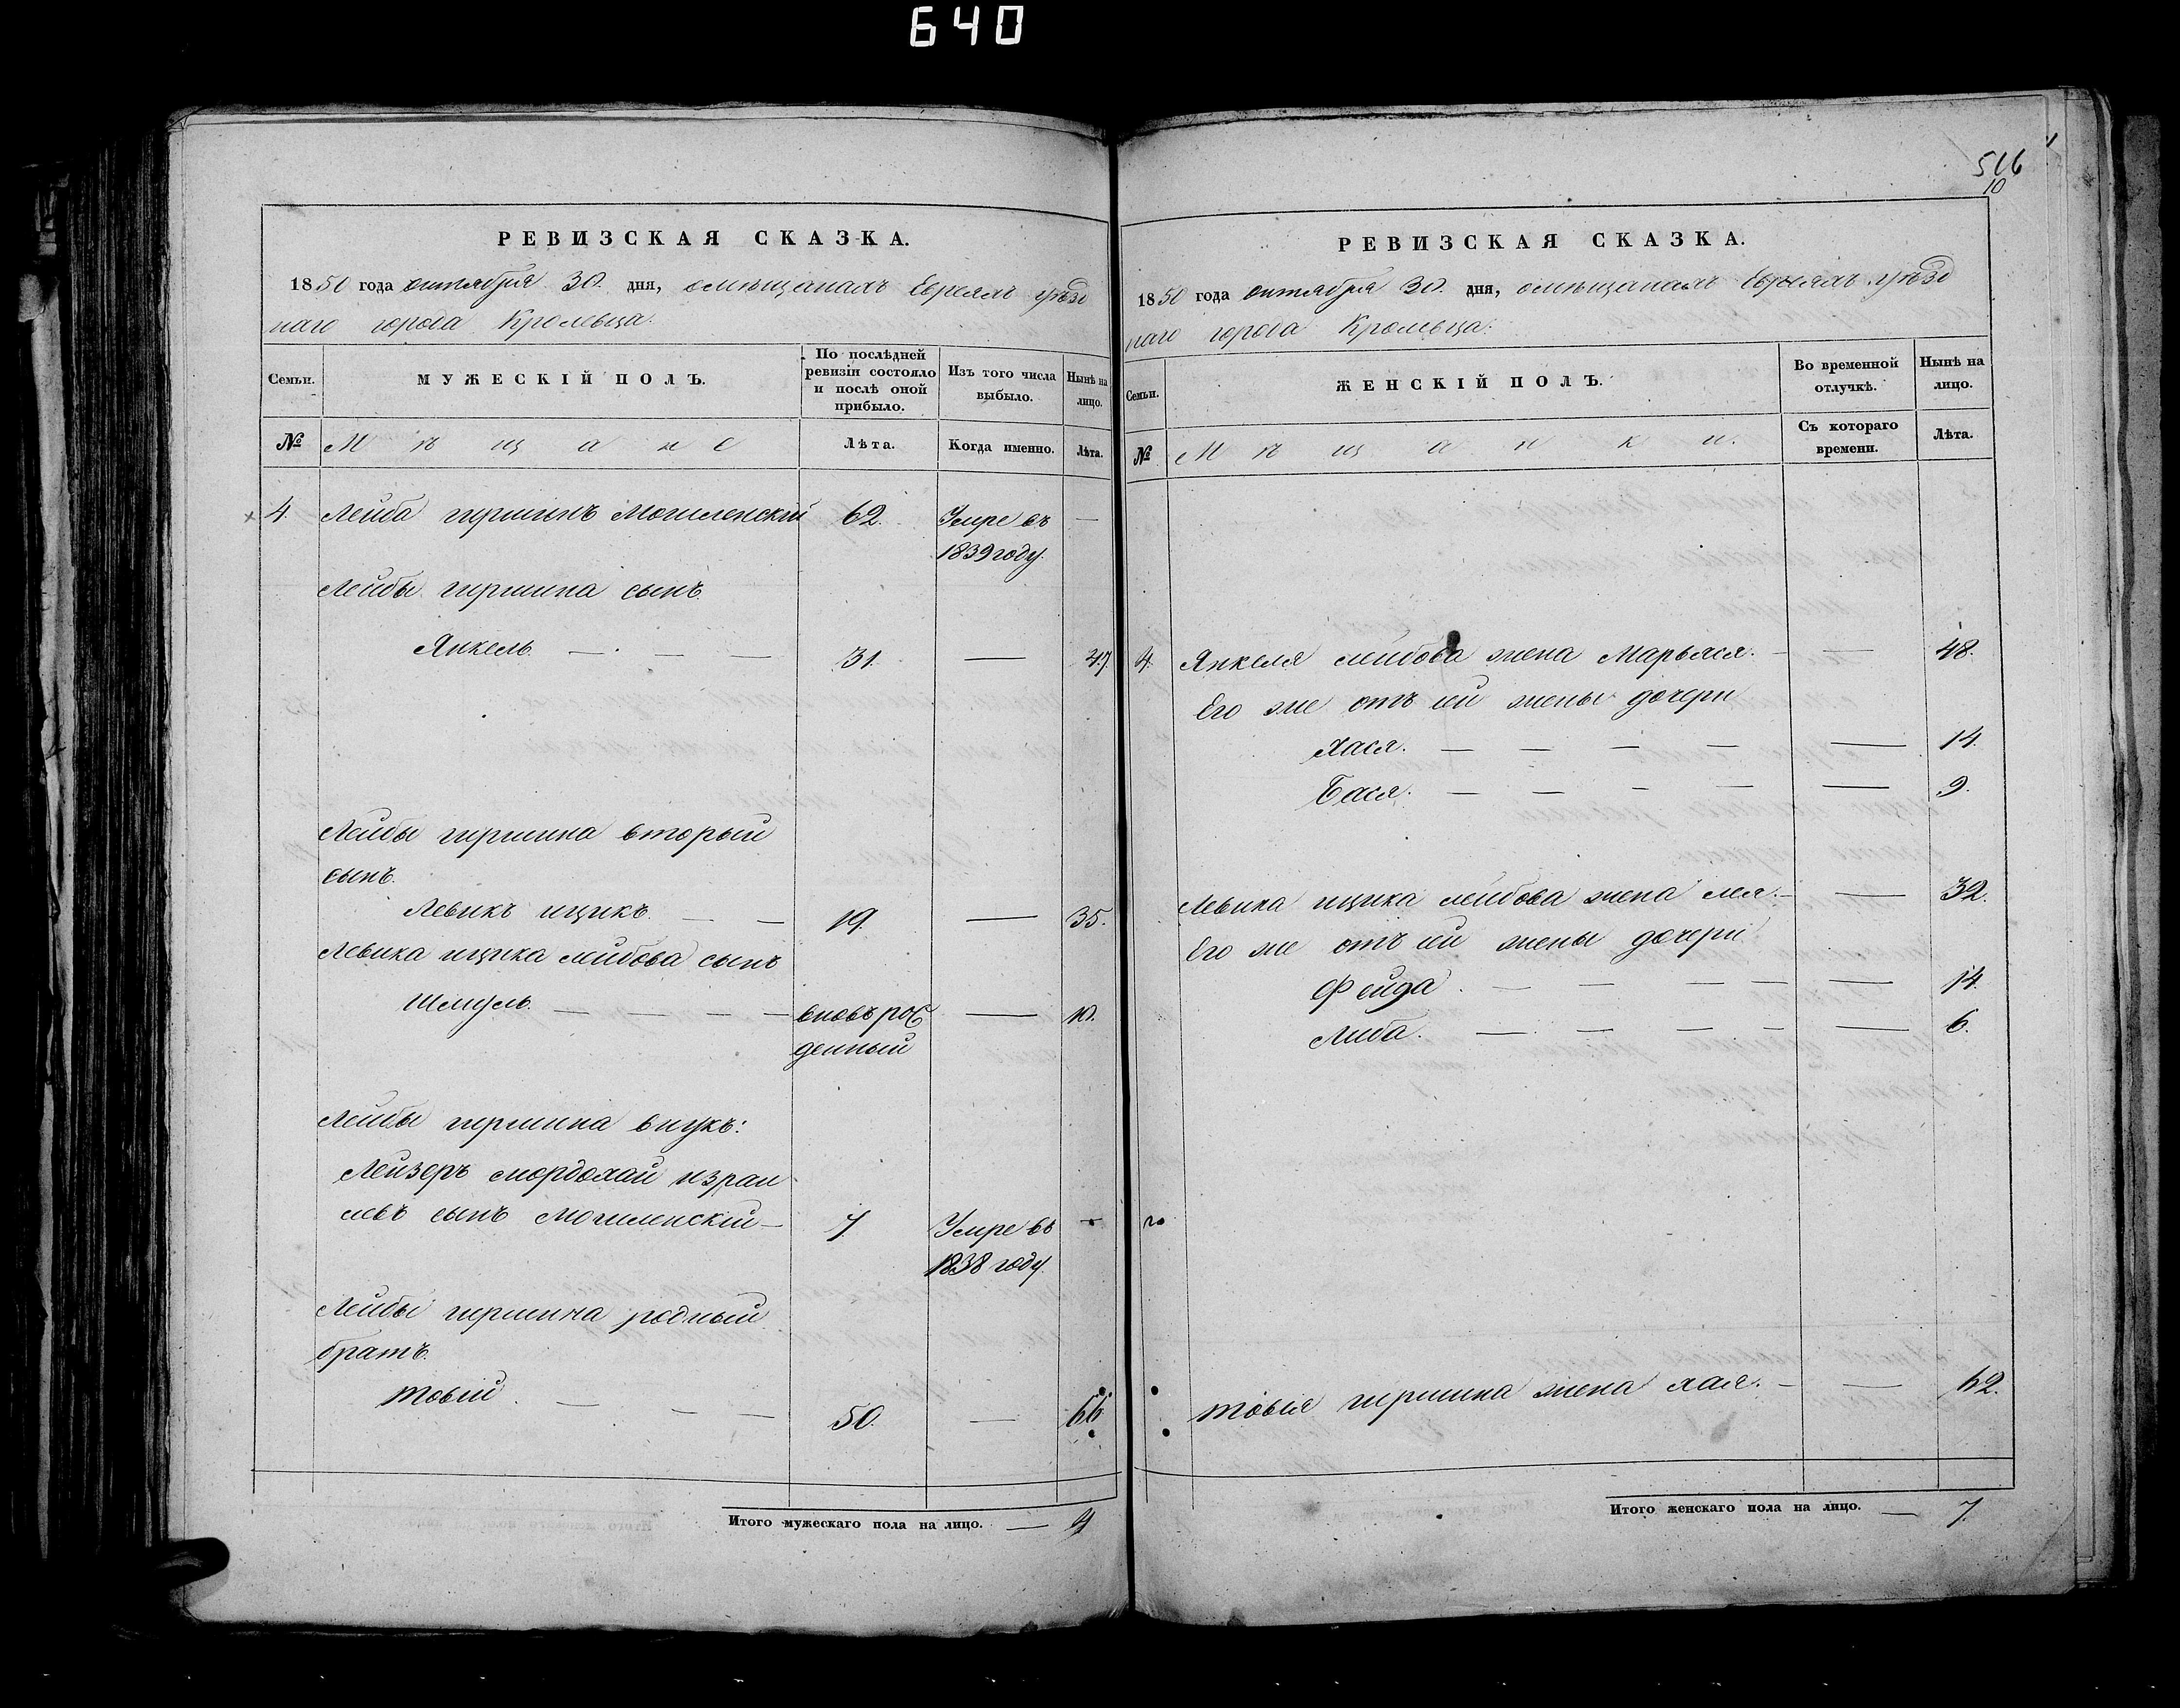 640
516
10
РЕВИЗСКАЯ СКАЗКА.
1850 года октября 30. дня, омѣщанахъ Евреяхъ уѣзд
наго города Кролевца.
Семьи.
МУЖЕСКІЙ ПОЛЪ.
По послѣдней ревизіи состояло и послѣ оной прибыло.
Изъ того числа выбыло.
Нынѣ на лицо.
№
Мѣщане
Лѣта.
Когда именно.
Лѣта.
4. Лейба гершинъ Могиленскій 62. Умре въ —
1839 году.
Лейбы гершина сынъ
Янкель. — — — 31. — 47
Лейбы гершина вторый
сынъ.
Левикъ ицикъ. — — 19. — 35.
Левика ицика лейбова сынъ
Шмуль. — — — — вновь рож — 10.
денный
Лейбы гершина внукъ:
Лейзеръ мордохай израи
левъ сынъ Могиленскій — 7. Умре въ —
1838 году.
Лейбы гершина родный
братъ.
Товій. — — — 50. — 66
Итого мужескаго пола на лицо. — 4
РЕВИЗСКАЯ СКАЗКА.
1850 года октября 30. дня, омѣщанахъ Евреяхъ уѣзд
наго города Кролевца.
Семьи.
ЖЕНСКІЙ ПОЛЪ.
Во временной отлучкѣ.
Нынѣ на лицо.
№
Мѣщанки.
Съ котораго времени.
Лѣта.
4. Янкеля лейбова жена Марьяся. — — 48.
Его же отъ сей жены дочери
Хася. — — — — — 14.
Бася. — — — — — 9.
Левика ицика лейбова жена лея. — — 32.
Его же отъ сей жены дочери
Фейда. — — — — — 14.
Либа. — — — — — 6.
Товія гершина жена хая. — — 62.
Итого женскаго пола на лицо. — 7.